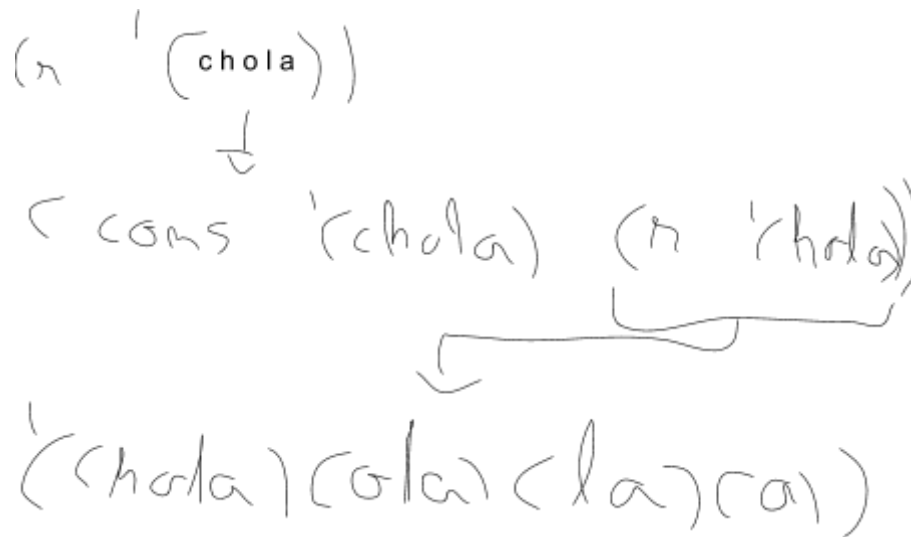 (r '(chola))
(cons '(chola) (r '(hola))
'((hola)(ola)(la)(a))